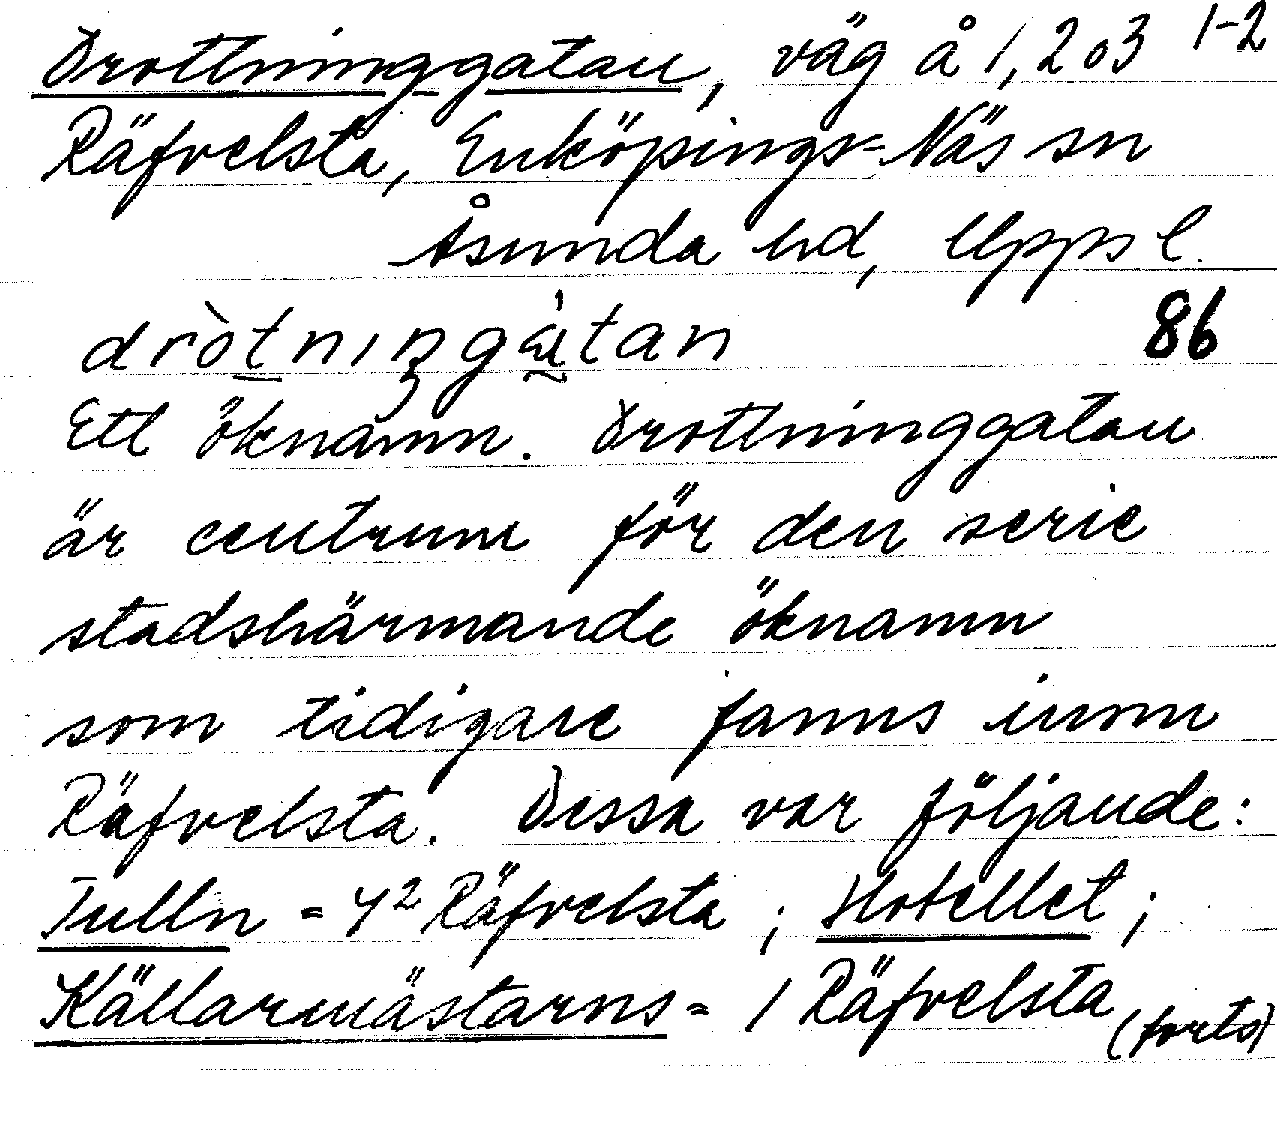 Drottninggatan, väg å 1, 2 o 3 1-2
Räfvelsta, Enköpings=Näs sn
Åsunda hd, Upps l.
86
Ett öknamn. Drottninggatan
är centrum för den serie
stadshärmande öknamn
som tidigare fanns inom
Räfvelsta. Dessa var följande:
Tulln = 4² Räfvelsta ; Hotellet ;
Källarmästarns = 1 Räfvelsta (forts)